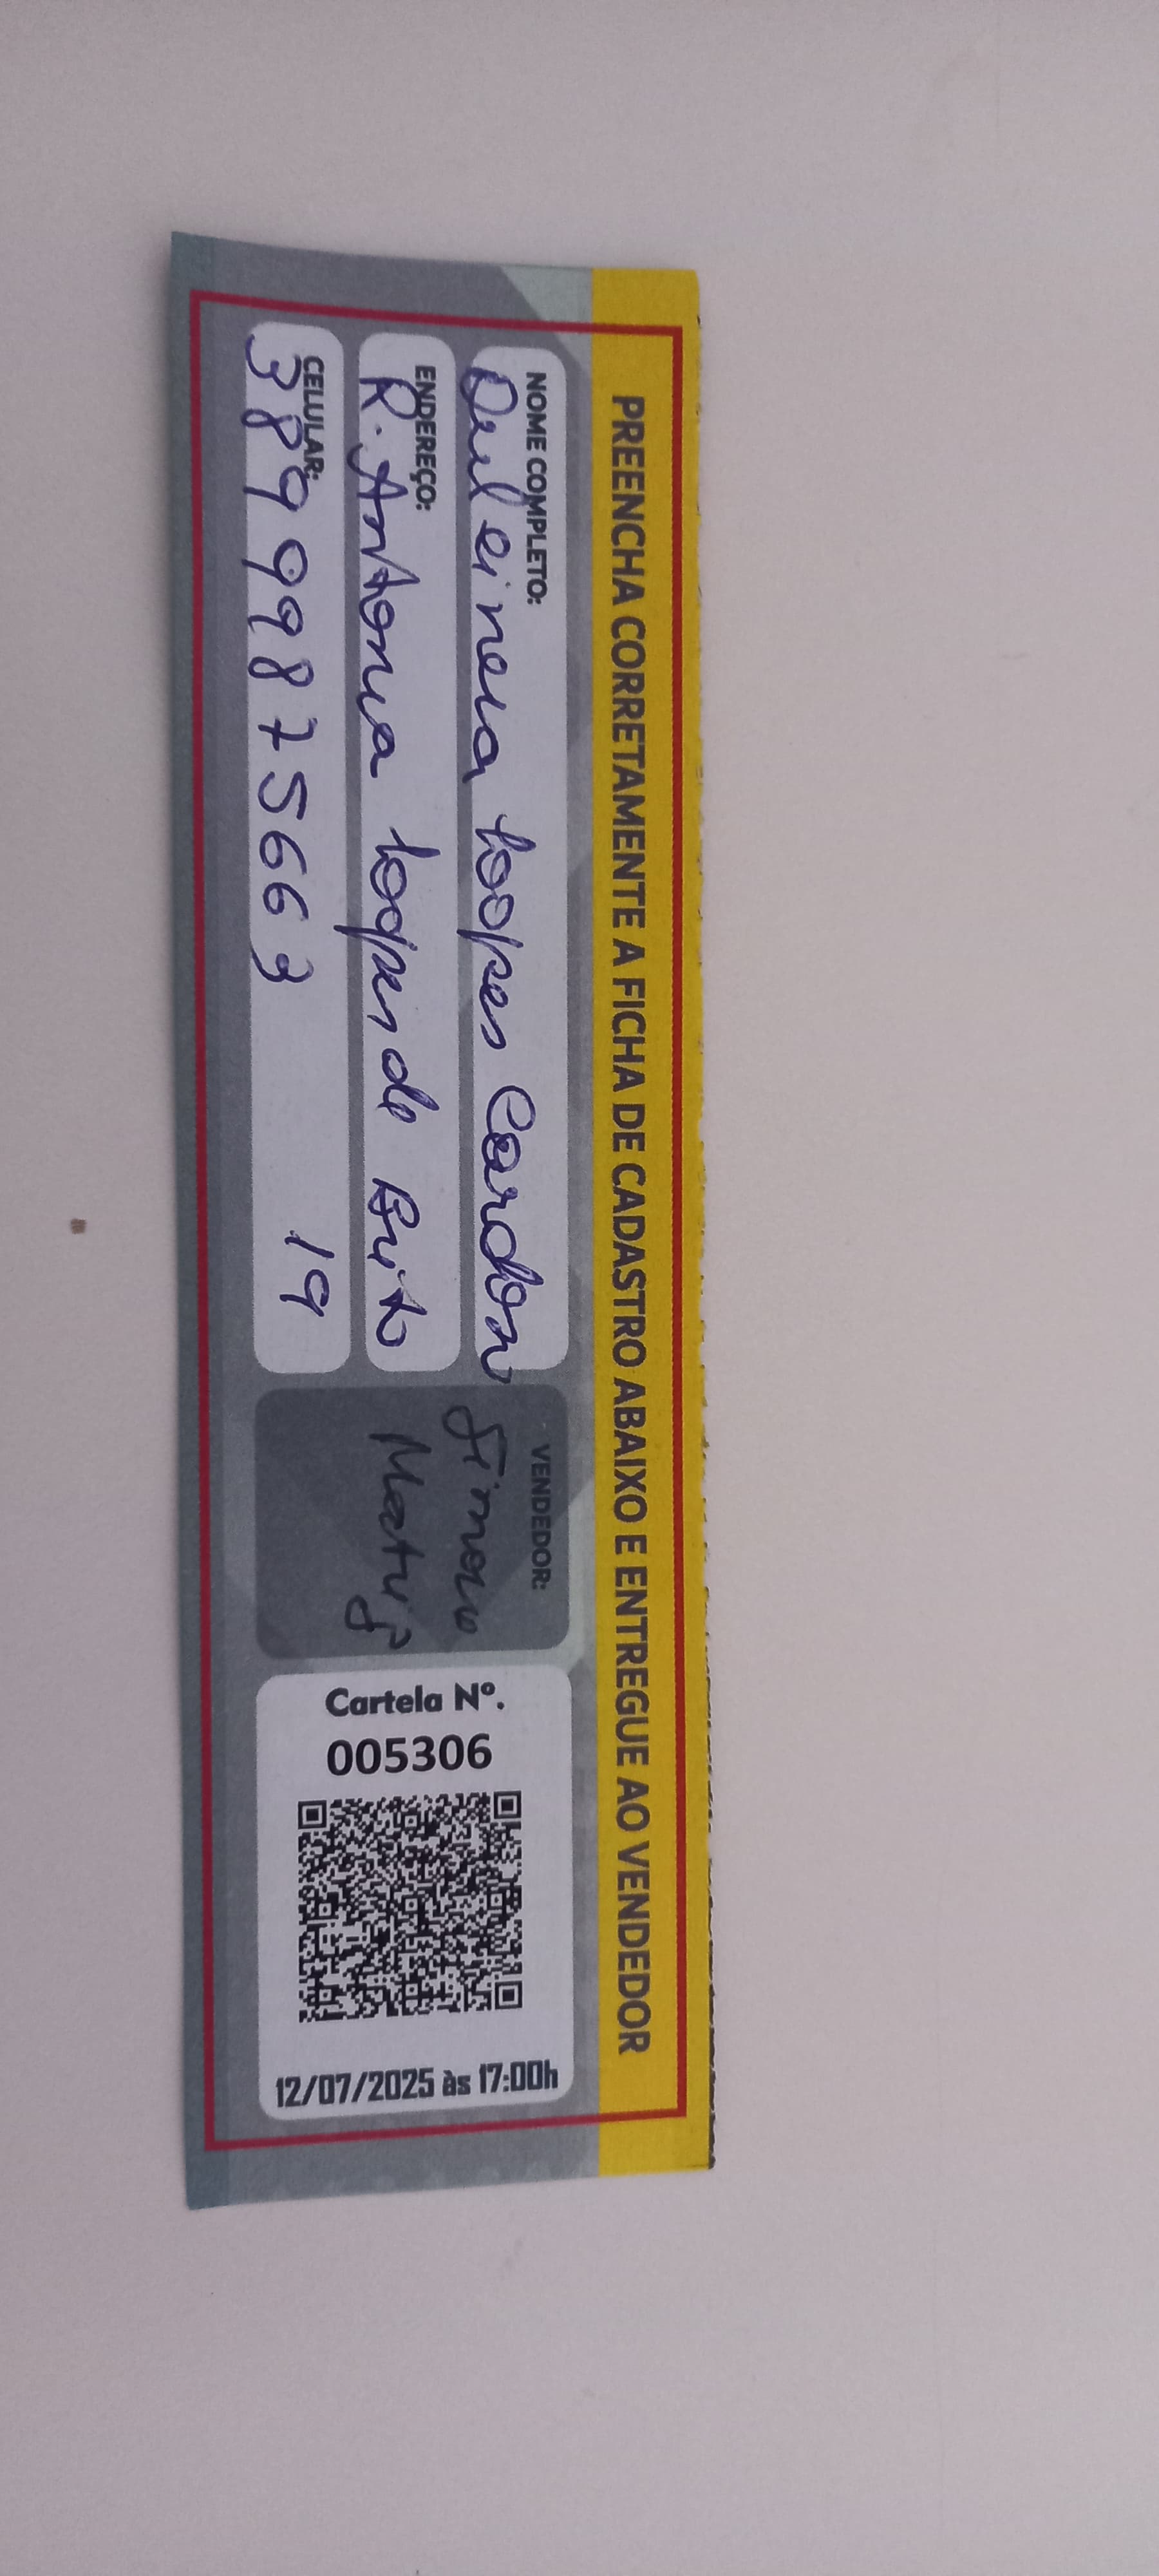 PREENCHA CORRETAMENTE A FICHA DE CADASTRO ABAIXO E ENTREGUE AO VENDEDOR
NOME COMPLETO:
Dulcineia Lopes Cardoso
ENDEREÇO:
R. Antonia Lopes de Brito
CELULAR:
38999875663 19
VENDEDOR:
Simone
Cartela Nº.
005306
12/07/2025 às 17:00h